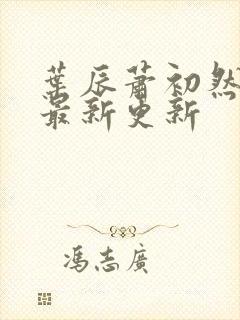 葉辰蕭初然
最新更新
馮志廣